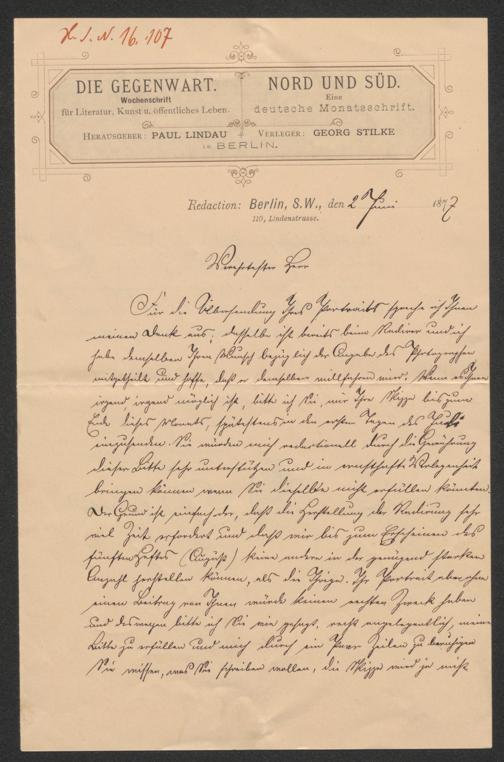 H. I. N. 16.107
DIE GEGENWART.
Wochenschrift
für Literatur, Kunst u. öffentliches Leben.
NORD UND SÜD.
Eine
deutsche Monatsschrift.
HERAUSGEBER: PAUL LINDAU
VERLEGER: GEORG STILKE
in BERLIN.
Redaction: Berlin, S.W., den 2 Juni 1877
110, Lindenstrasse.
Verehrtester Herr
Für die Übersendung Ihres Portraits spreche ich Ihnen
meinen Dank aus; dasselbe ist bereits beim Radirer und ich
habe demselben Ihren Wunsch bezüglich der Angabe des Photographen
mitgetheilt und hoffe, daß er demselben willfahren wird. Wenn es Ihnen
irgend, irgend möglich ist, bitte ich Sie, mir Ihre Skizze bis zum
Ende dieses Monats, spätestens in den ersten Tagen des Juli
einzusenden. Sie würden mich redactionell durch die Gewährung
dieser Bitte sehr unterstützen und in ernsthafte Verlegenheit
bringen können wenn Sie dieselbe nicht erfüllen könnten.
Der Grund ist einfach der, daß die Herstellung der Radirung sehr
viel Zeit erfordert und daß wir bis zum Erscheinen des
fünften Heftes (August) keine andere in der genügend starken
Anzahl herstellen können, als die Ihrige. Ihr Portrait aber ohne
einen Beitrag von Ihnen würde keinen rechten Zweck haben
und deswegen bitte ich Sie wie gesagt, recht angelegentlich, meine
Bitte zu erfüllen und mich durch ein Paar Zeilen zu beruhigen
Sie wissen, was Sie schreiben wollen, die Skizze wird ja nicht